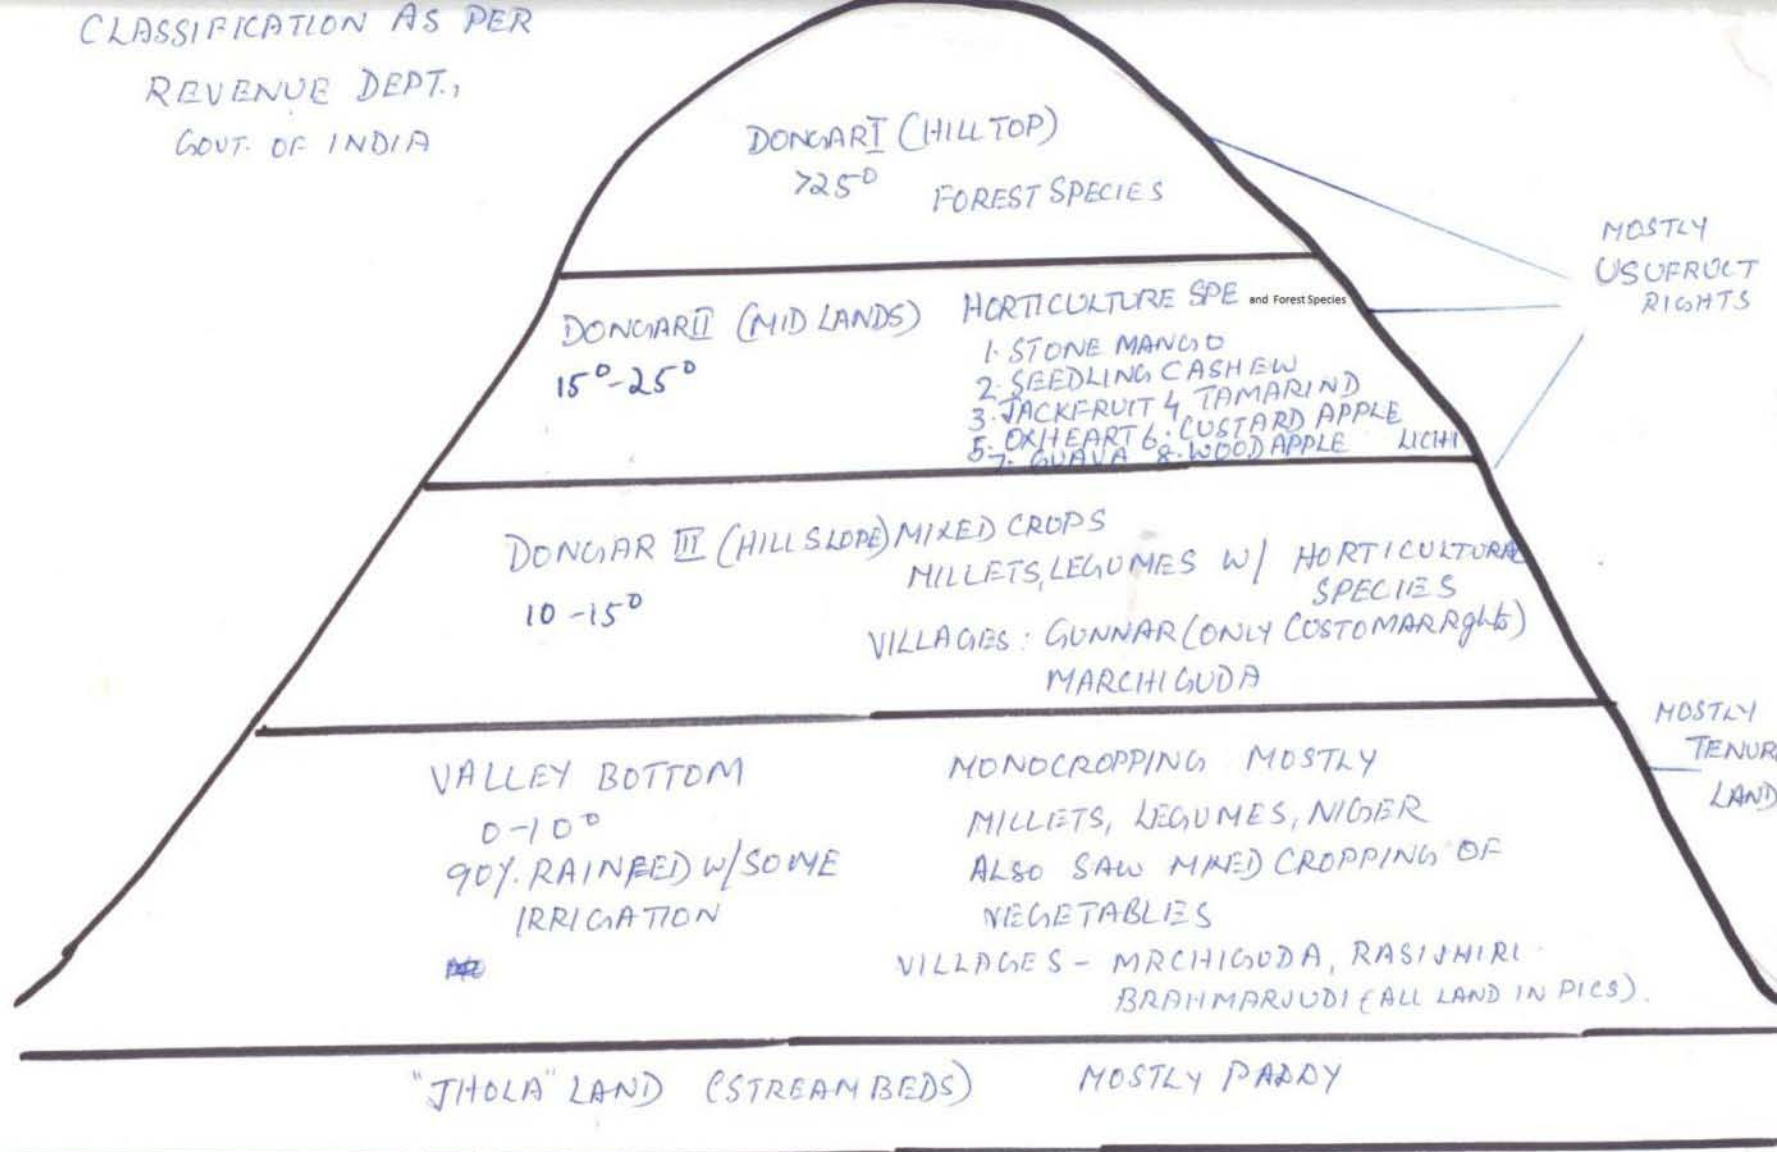 CLASSIFICATION AS PER
REVENUE DEPT.,
GOVT. OF INDIA
DONGAR I (HILL TOP)
>25°
FOREST SPECIES
MOSTLY
USUFRUCT
RIGHTS
DONGAR II (MID LANDS)
15°-25°
HORTICULTURE SPE and Forest Species
1. STONE MANGO
2. SEEDLING CASHEW
3. JACKFRUIT 4. TAMARIND
5. OXHEART 6. CUSTARD APPLE
7. GUAVA 8. WOOD APPLE LICHI
DONGAR III (HILL SLOPE) MIXED CROPS
10-15°
MILLETS, LEGUMES W/ HORTICULTURA
SPECIES
VILLAGES: GUNNAR (ONLY COSTOMARRghts)
MARCHIGUDA
MOSTLY
TENUR
LAND
VALLEY BOTTOM
0-10°
90% RAINFED W/SOME
IRRIGATION
MONOCROPPING MOSTLY
MILLETS, LEGUMES, NIGER
ALSO SAW MIXED CROPPING OF
VEGETABLES
VILLAGES - MRCHIGUDA, RASIJHIRI
BRAHMARJUDI (ALL LAND IN PICS).
"JHOLA" LAND (STREAM BEDS) MOSTLY PADDY